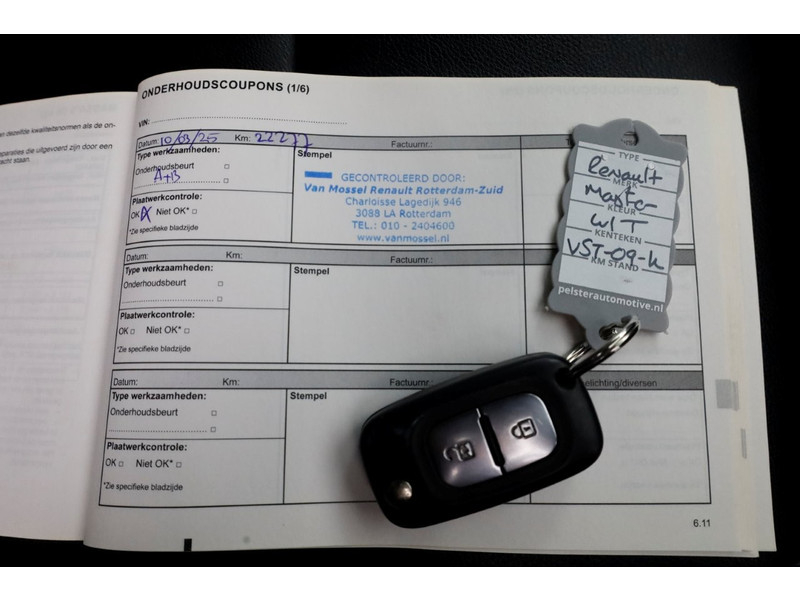 en dezelfde kwaliteitsnormen als de on-
paraties die uitgevoerd zijn door een
acht staan.
ONDERHOUDSCOUPONS (1/6)
VIN:
Datum: 10/03/25 Km: 22277 Factuurnr.:
Type werkzaamheden:
Onderhoudsbeurt □
A+B □
Plaatwerkcontrole:
OK X Niet OK* □
*Zie specifieke bladzijde
Stempel
GECONTROLEERD DOOR:
Van Mossel Renault Rotterdam-Zuid
Charloisse Lagedijk 946
3088 LA Rotterdam
TEL.: 010 - 2404600
www.vanmossel.nl
Datum: Km: Factuurnr.:
Type werkzaamheden:
Onderhoudsbeurt □
□
Plaatwerkcontrole:
OK □ Niet OK* □
*Zie specifieke bladzijde
Stempel
Datum: Km: Factuurnr.: elichting/diversen
Type werkzaamheden:
Onderhoudsbeurt □
□
Plaatwerkcontrole:
OK □ Niet OK* □
*Zie specifieke bladzijde
Stempel
6.11
TYPE
Renault
MERK
Master
KLEUR
WIT
KENTEKEN
VST-09-K
KM STAND
pelsterautomotive.nl